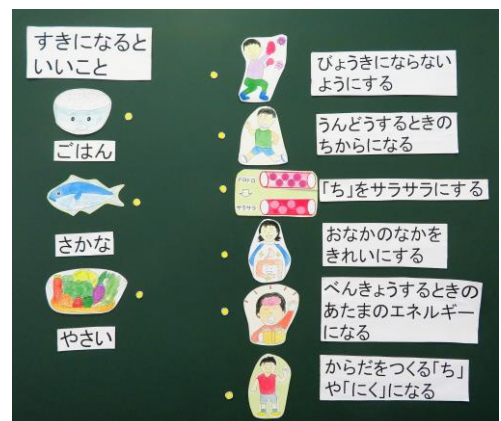 すきになると
いいこと
ごはん
さかな
やさい
びょうきにならない
ようにする
うんどうするときの
ちからになる
「ち」をサラサラにする
おなかのなかを
きれいにする
べんきょうするときの
あたまのエネルギー
になる
からだをつくる「ち」
や「にく」になる
サラサラ